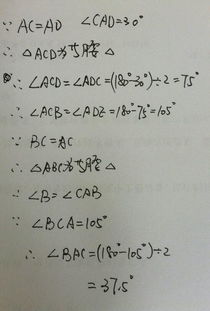 ∵ AC=AD ∠CAD=30°
∴ △ACD为等腰△
∴ ∠ACD=∠ADC=(180°-30°)÷2=75°
∴ ∠ACB=∠ADE=180°-75°=105°
∵ BC=AC
∴ △ABC为等腰△
∴ ∠B=∠CAB
∵ ∠BCA=105°
∴ ∠BAC=(180°-105°)÷2
=37.5°